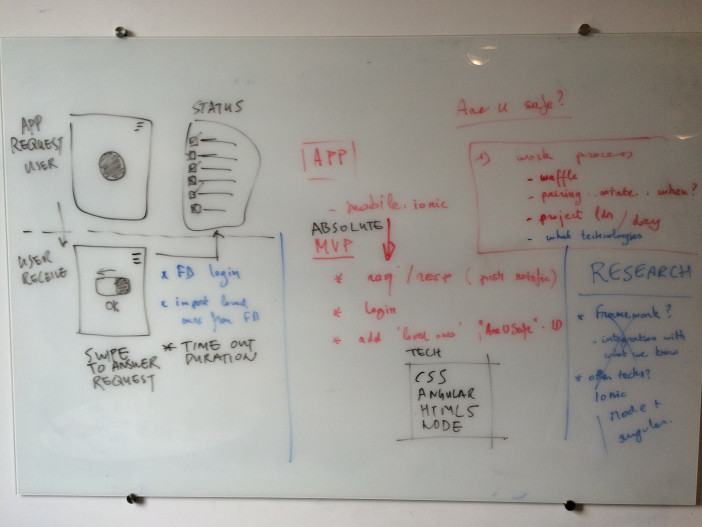 APP
REQUEST
USER
STATUS
USER
RECEIVE
OK
SWIPE
TO ANSWER
REQUEST
* FB login
* import loved
ones from FB
* TIME OUT
DURATION
Are U safe?
APP
- mobile: ionic
ABSOLUTE
MVP
* req / resp ( push notific)
* login
* add 'loved ones' ; "Are U Safe" - ID
TECH
CSS
ANGULAR
HTML5
NODE
1) work process
- waffle
- pairing : rotate : when?
- project / day
- what technologies
RESEARCH
* Framework?
- integration with
what we know
* other techs?
Ionic
node +
angular.